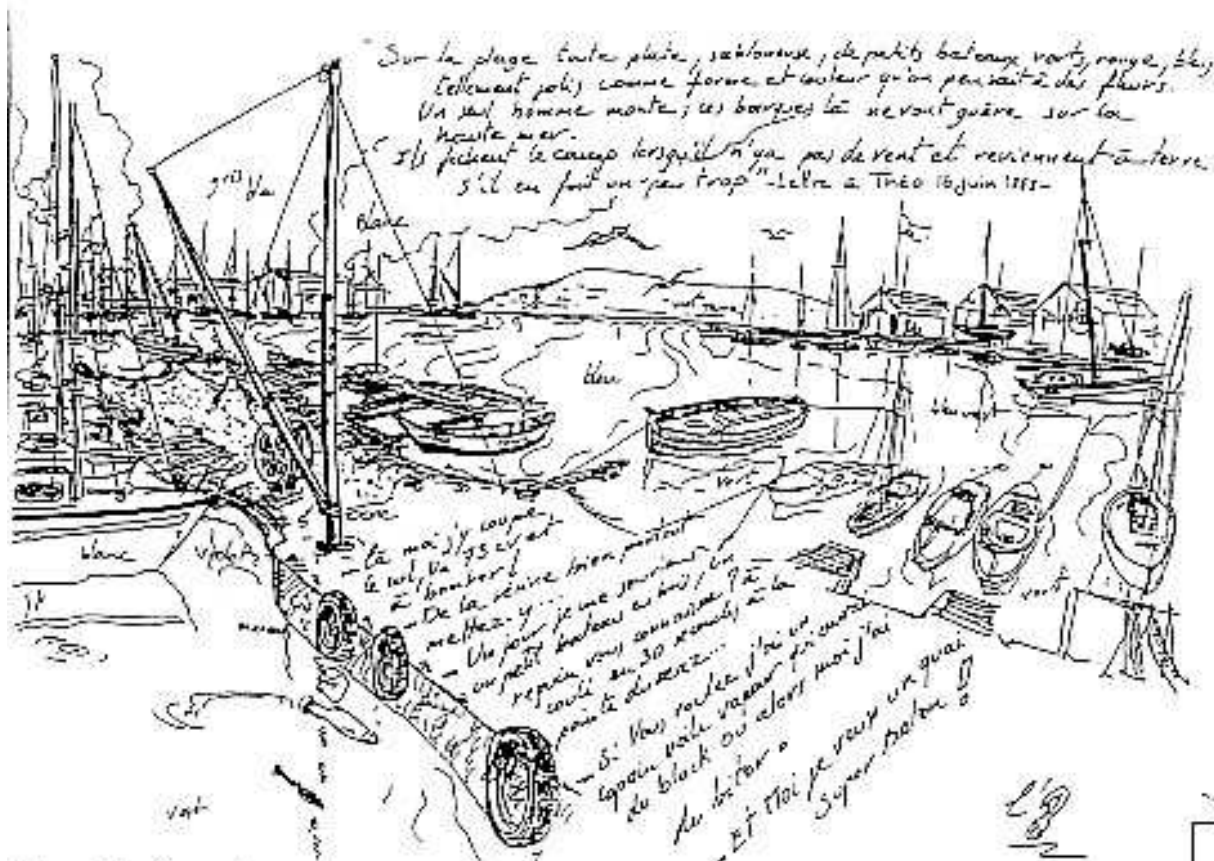 "Sur la plage toute plate, sabloneuse, de petits bateaux verts, rouge, bleu,
tellement jolis comme forme et couleur qu'on pensait à des fleurs.
Un seul homme monte, ces barques là ne vont guère sur la
haute mer.
Ils fichent le camp lorsqu'il n'y a pas de vent et reviennent à terre
s'il en fait un peu trop" - Lettre à Théo
gris bleu
blanc
bleu
bleu vert
vert
blanc
violet
- là moi j'y coupe
le
à bombord
- De la résine bien partout
mettez-y...
- Un jour, je me souviens
un petit bateau en bois, un
requin vous connaissez, ça
coulé en 30 secondes à la
pointe du
- Si vous voulez j'ai un
copain voile vapeur qui vend
du black ou alors moi j'ai
du bitor
- Et Moi je veux un quai
super béton !!
vert
vert